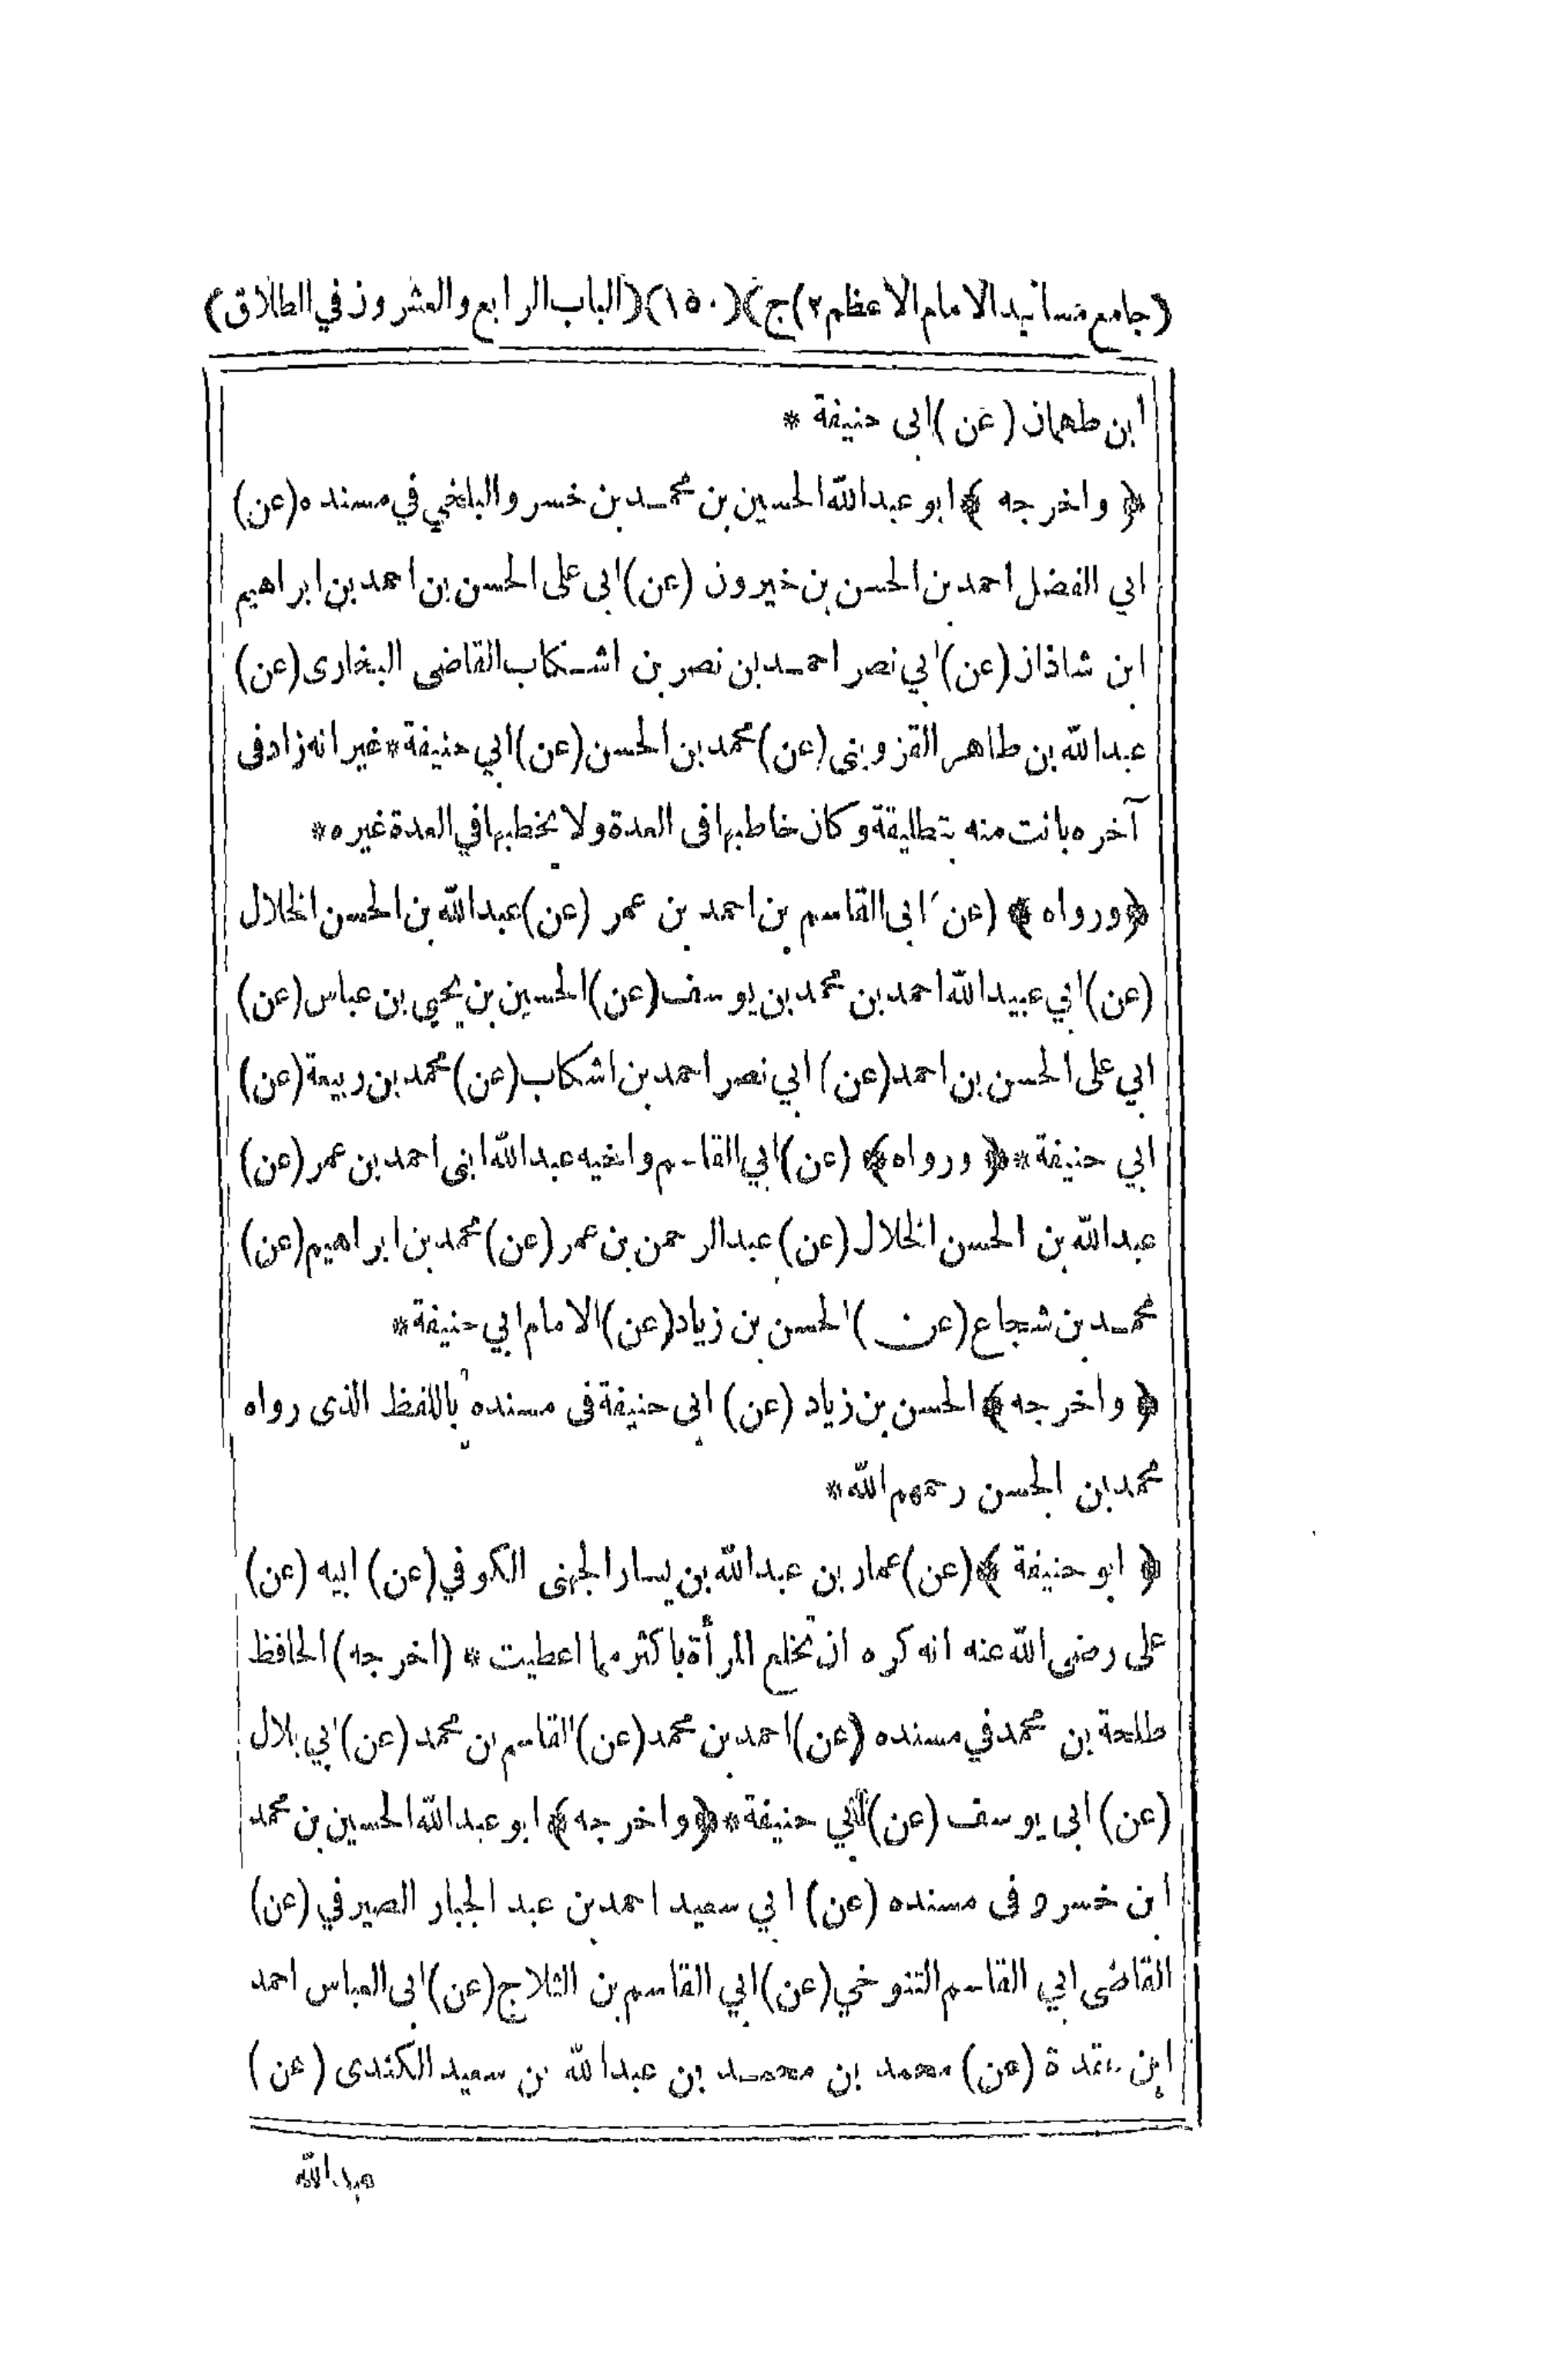 (جامع مسانيد الامام الاعظم ٢) ج) (١٥٠) (الباب الرابع والعشرون في الطلاق)
ابن طهمان (عن) ابى حنيفة *
﴿ واخرجه ﴾ ابو عبدالله الحسين بن محمد بن خسرو البلخي في مسنده (عن)
ابي الفضل احمد بن الحسن بن خيرون (عن) ابى على الحسن بن احمد بن ابراهيم
ابن شاذان (عن) ابي نصر احمد بن نصر بن اشكاب القاضى البخارى (عن)
عبدالله بن طاهر القزوينى (عن) محمد بن الحسن (عن) ابي حنيفة * غير انه زاد فى
آخره بانت منه بتطليقة وكان خاطبها فى العدة ولا يخطبها في العدة غيره *
﴿ ورواه ﴾ (عن) ابى القاسم بن احمد بن عمر (عن) عبدالله بن الحسن الخلال
(عن) ابي عبيدالله احمد بن محمد بن يوسف (عن) الحسين بن يحيى بن عباس (عن)
ابي على الحسن بن احمد (عن) ابي نصر احمد بن اشكاب (عن) محمد بن ربيعة (عن)
ابي حنيفة * ﴿ ورواه ﴾ (عن) ابي القاسم واخيه عبدالله ابنى احمد بن عمر (عن)
عبدالله بن الحسن الخلال (عن) عبدالرحمن بن عمر (عن) محمد بن ابراهيم (عن)
محمد بن شجاع (عن) الحسن بن زياد (عن) الامام ابي حنيفة *
﴿ واخرجه ﴾ الحسن بن زياد (عن) ابى حنيفة فى مسنده باللفظ الذى رواه
محمد بن الحسن رحمهم الله *
﴿ ابو حنيفة ﴾ (عن) عمار بن عبدالله بن يسار الجهنى الكوفي (عن) ابيه (عن)
على رضى الله عنه انه كره ان تخلع المرأة باكثر مما اعطيت * (اخرجه) الحافظ
طلحة بن محمد في مسنده (عن) احمد بن محمد (عن) القاسم بن محمد (عن) ابي بلال
(عن) ابى يوسف (عن) ابي حنيفة * ﴿ واخرجه ﴾ ابو عبدالله الحسين بن محمد
ابن خسرو فى مسنده (عن) ابي سعيد احمد بن عبد الجبار الصيرفي (عن)
القاضى ابي القاسم التنوخي (عن) ابي القاسم بن الثلاج (عن) ابى العباس احمد
ابن عقدة (عن) محمد بن محمد بن عبدالله بن سعيد الكندى (عن)
عبدالله